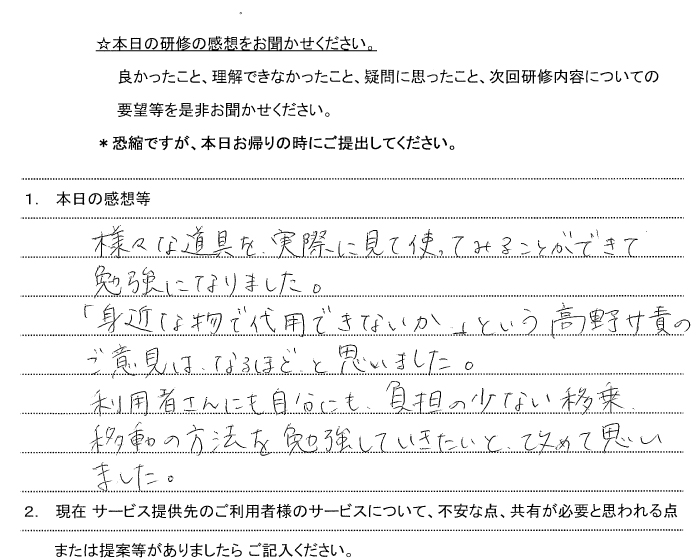 ☆本日の研修の感想をお聞かせください。
良かったこと、理解できなかったこと、疑問に思ったこと、次回研修内容についての
要望等を是非お聞かせください。
＊恐縮ですが、本日お帰りの時にご提出してください。
1. 本日の感想等
様々な道具を、実際に見て使ってみることができて
勉強になりました。
「身近な物で代用できないか」という高野サ責の
ご意見は、なるほど、と思いました。
利用者さんにも自分にも、負担の少ない移乗、
移動の方法を勉強していきたいと、改めて思い
ました。
2. 現在 サービス提供先のご利用者様のサービスについて、不安な点、共有が必要と思われる点
または提案等がありましたら ご記入ください。